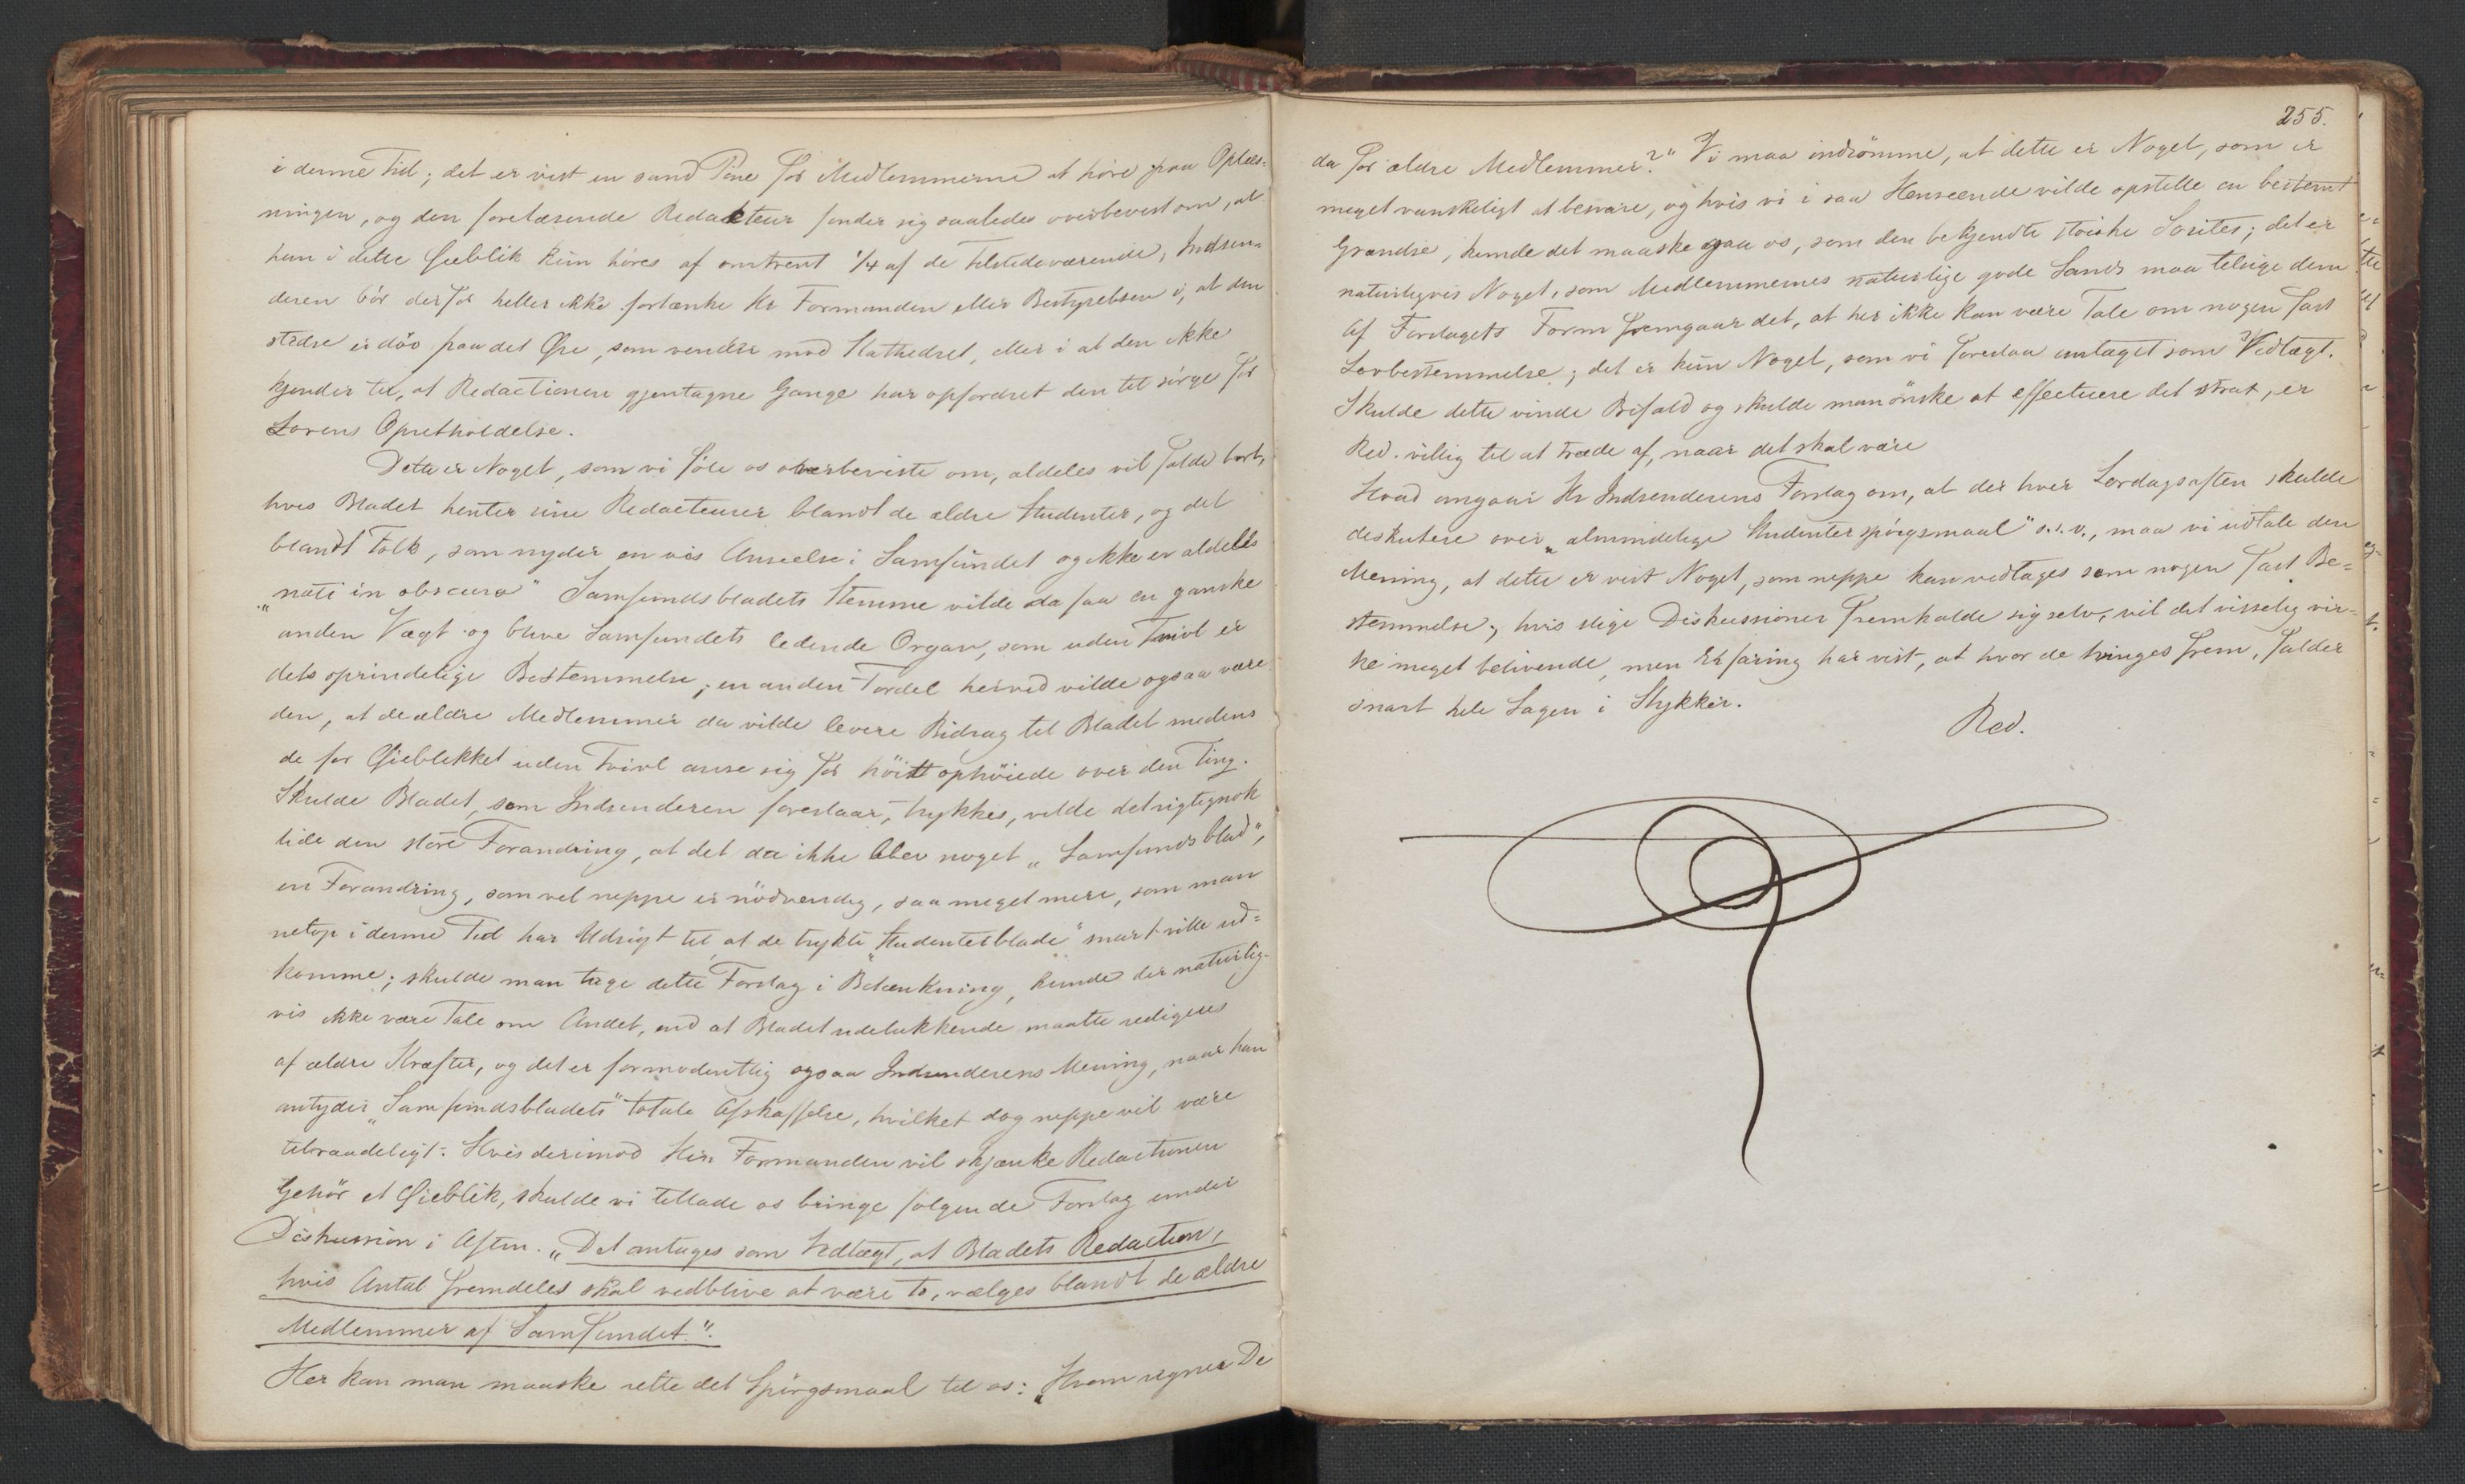 i denne Tid; det er vist en sand Pine for Medlemmerne at høre paa Oplæs-
ningen, og den forelæsende Redakteur finder sig saaledes overbevist om, at
han i dette Øieblik kun høres af omtrent 1/4 af de Tilstedeværende, Indsen-
deren bør derfor heller ikke fortænke Hr Formanden eller Bestyrelsen i, at den
sidste er døv paa det Øre, som vender mod Kathedret, eller i at den ikke
kjender til, at Redactionen gjentagne Gange har opfordret den til sørge for
Lovens Opretholdelse.
Dette er Noget, som vi føle os overbeviste om, aldeles vil falde bort,
hvis Bladet henter sine Redacteurer blandt de ældre Studenter, og det
blandt Folk, som nyder en vis Anseelse i Samfundet og ikke er aldeles
"nati in obscuro" Samfundsbladets Stemme vilde da faa en ganske
anden Vægt og blive Samfundets ledende Organ, som uden Tvivl er
dets oprindelige Bestemmelse; en anden Fordel herved vilde ogsaa være
den, at de ældre Medlemmer da vilde levere Bidrag til Bladet medens
de for Øieblikket uden Tvivl anse sig for høit ophøiede over den Ting.
Skulde Bladet, som Indsenderen foreslaar, trykkes, vilde det rigtignok
lide den store Forandring, at det da ikke blev noget „Samfundsblad",
en Forandring, som vel neppe er nødvendig, saa meget mere, som man
netop i denne Tid har Udsigt til, at de trykte „Studenterblade" snart ville ud-
komme; skulde man tage dette Forslag i Betænkning, kunde der naturlig-
vis ikke være Tale om Andet, end at Bladet udelukkende maatte redigeres
af ældre Kræfter, og det er formodentlig ogsaa Indsenderens Mening, naar han
antyder „Samfundsbladets" totale Afskaffelse, hvilket dog neppe vil være
tilraadeligt. Hvis derimod Hr. Formanden vil skjænke Redactionen
Gehør et Øieblik, skulde vi tillade os bringe følgende Forslag under
Diskussion i Aften. „Det antages som Vedtægt, at Bladets Redaction,
hvis Antal fremdeles skal vedblive at være to, vælges blandt de ældre
Medlemmer af Samfundet."
Her kan man maaske rette det Spørgsmaal til os: „Hvem regner De
255.
da for ældre Medlemmer?" Vi maa indrømme, at dette er Noget, som er
meget vanskeligt at besvare, og hvis vi i saa Henseende vilde opstille en bestemt
Grændse, kunde det maaske gaa os, som den bekjendte stoiske Sorites; det er
naturligvis Noget, som Medlemmernes naturlige gode Sands maa tilsige dem
Af Forslagets Form fremgaar det, at her ikke kan være Tale om nogen fast
Lovbestemmelse; det er kun Noget, som vi foreslaa antaget som Vedtægt.
Skulde dette vinde Bifald og skulde man ønske at effectuere det strax, er
Red. villig til at træde af, naar det skal være
Hvad angaar Hr Indsenderens Forslag om, at der hver Lørdagsaften skulde
diskutere over „almindelige Studenterspørgsmaal" o.s.v., maa vi udtale den
Mening, at dette er vist Noget, som neppe kan vedtages som nogen fast Be-
stemmelse; hvis slige Diskussioner fremkalde sig selv, vil det visselig vir-
ke meget belivende, men Erfaring har vist, at hvor de tvinges frem, falder
snart hele Sagen i Stykker.
Red.